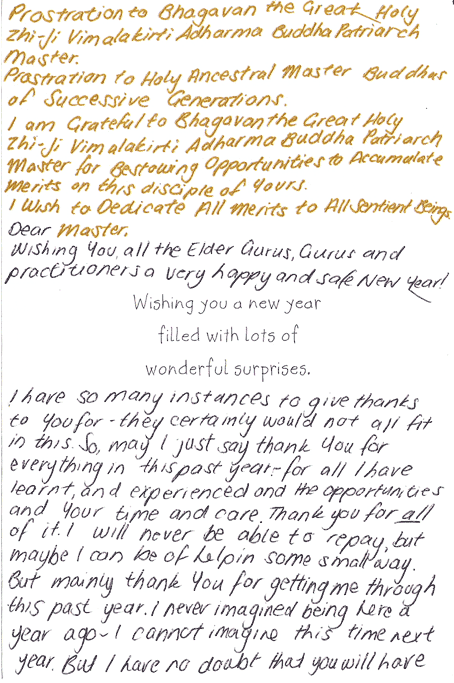 Prostration to Bhagavan the Great Holy
Zhi-Ji Vimalakirti Adharma Buddha Patriarch
Master.
Prostration to Holy Ancestral Master Buddhas
of Successive Generations.
I am Grateful to Bhagavan the Great Holy
Zhi-Ji Vimalakirti Adharma Buddha Patriarch
Master for Bestowing Opportunities to Accumulate
merits on this disciple of Yours.
I Wish to Dedicate All merits to All Sentient Beings.
Dear Master,
Wishing You, all the Elder Gurus, Gurus and
practitioners a very happy and safe New Year!
Wishing you a new year
filled with lots of
wonderful surprises.
I have so many instances to give thanks
to You for - they certainly would not all fit
in this. So, may I just say thank You for
everything in this past year - for all I have
learnt, and experienced and the opportunities
and Your time and care. Thank you for all
of it. I will never be able to repay, but
maybe I can be of help in some small way.
But mainly thank You for getting me through
this past year. I never imagined being here a
year ago - I cannot imagine this time next
year. But I have no doubt that you will have